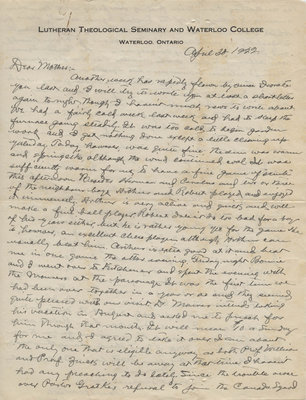 LUTHERAN THEOLOGICAL SEMINARY AND WATERLOO COLLEGE
WATERLOO, ONTARIO
April 30, 1932
Dear Mother:-
Another week has rapidly flown by since I wrote
you last and I will try to write you at least a short letter
again to-night, though I haven't much news to write about.
We had a fairly cool week last week and had to keep the
furnace going steadily. It was too cold to begin garden
work and I got nothing done except a little cleaning up
yesterday. Today, however, was quite fine. The sun was warm
and springlike although the wind continued cool. It was
sufficiently warm for us to have a fine game of
this afternoon. Besides Norman and and two or three
of the neighbour boys Arthur and Robert played and enjoyed
it immensely. Arthur is very active and quick and will
make a fine ball player. Robert too bad for a boy
of his years either but he is rather young yet for the game. He
is, however, an excellent chess player although Arthur can
usually beat him. Arthur is quite good at it and beat
me in one game the other evening. Friday night
and I went over to Kitchener and spent the evening with
the at the parsonage. It was the first time we
had been over together in a year or so and they seemed
quite pleased with our visit. Mr. intends taking
his vacation in August and asked me to preach for
him through that month. It will mean 10 a Sunday
for me and I agreed to take it over. I am about
the only one that is eligible anyway as both Prof. Willison
and Prof. will be away at that time. I haven't
had any preaching to do lately since the trouble arose
over Pastor refusal to join the Canada Synod